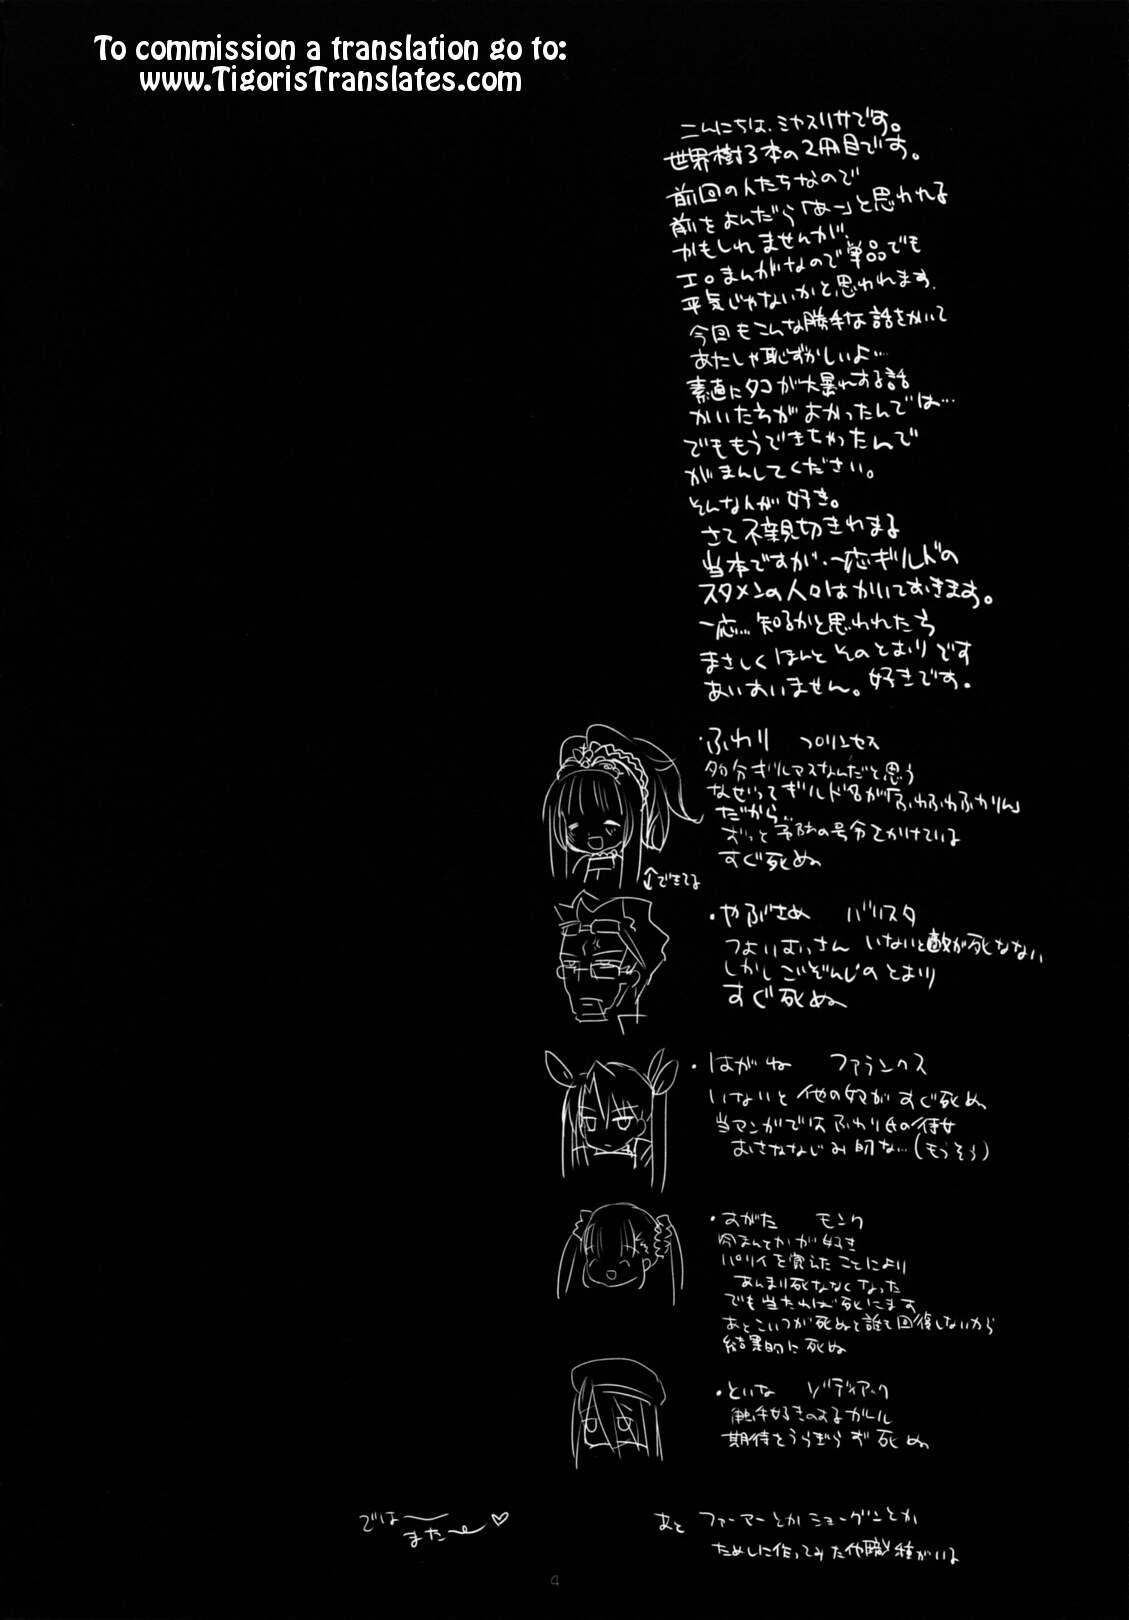 To commission a translation go to:
www.TigorisTranslates.com
こんにちは、ミヤスリサです。
世界樹3本の2冊目です。
前回の人たちなので
前をよんだら「あー」と思われる
かもしれませんが、
エロまんがなので単品でも
平気じゃないかと思われます。
今回もこんな勝手な話をかいて
あたしゃ恥ずかしいよ…
素直にタコが大暴れする話
かいたらがよかったんでは…
でももうできちゃったんで
がまんしてください。
そんな人が好き。
さて不親切きわまる
当本ですが、一応ギルドの
スタメンの人々はかいておきます。
一応…知るかと思われたら
まさしくほんとそのとおりです
あいすいません。好きです。
・ふわり プリンセス
多分ギルマスなんだと思う
なぜってギルド名が「ふわふわふわりん」
だから…
ずっと予防の号令をかけている
すぐ死ぬ
↑↓できてる
・やぶさめ バリスタ
つよいおっさん いないと敵が死なない
しかしごぞんじのとおり
すぐ死ぬ
・はがね ファランクス
いないと他の奴がすぐ死ぬ
当マンガではふわり氏の侍女
おさななじみ的な…(もうそう)
・すがた モンク
パリィを覚えたことにより
あんまり死ななくなった
でも当たれば死にます
あとこいつが死ぬと誰も回復しないから
結果的に死ぬ
・といな ゾディアック
触手好きのするガール
期待をうらぎらず死ぬ
では〜
また〜♡
あと ファーマーとかショーグンとか
ためしに作ってみた他職種がいる